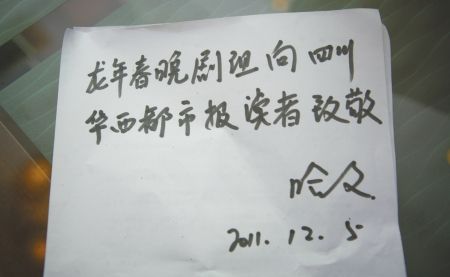 龙年春晚剧组向四川
华西都市报读者致敬
哈文
2011.12.5